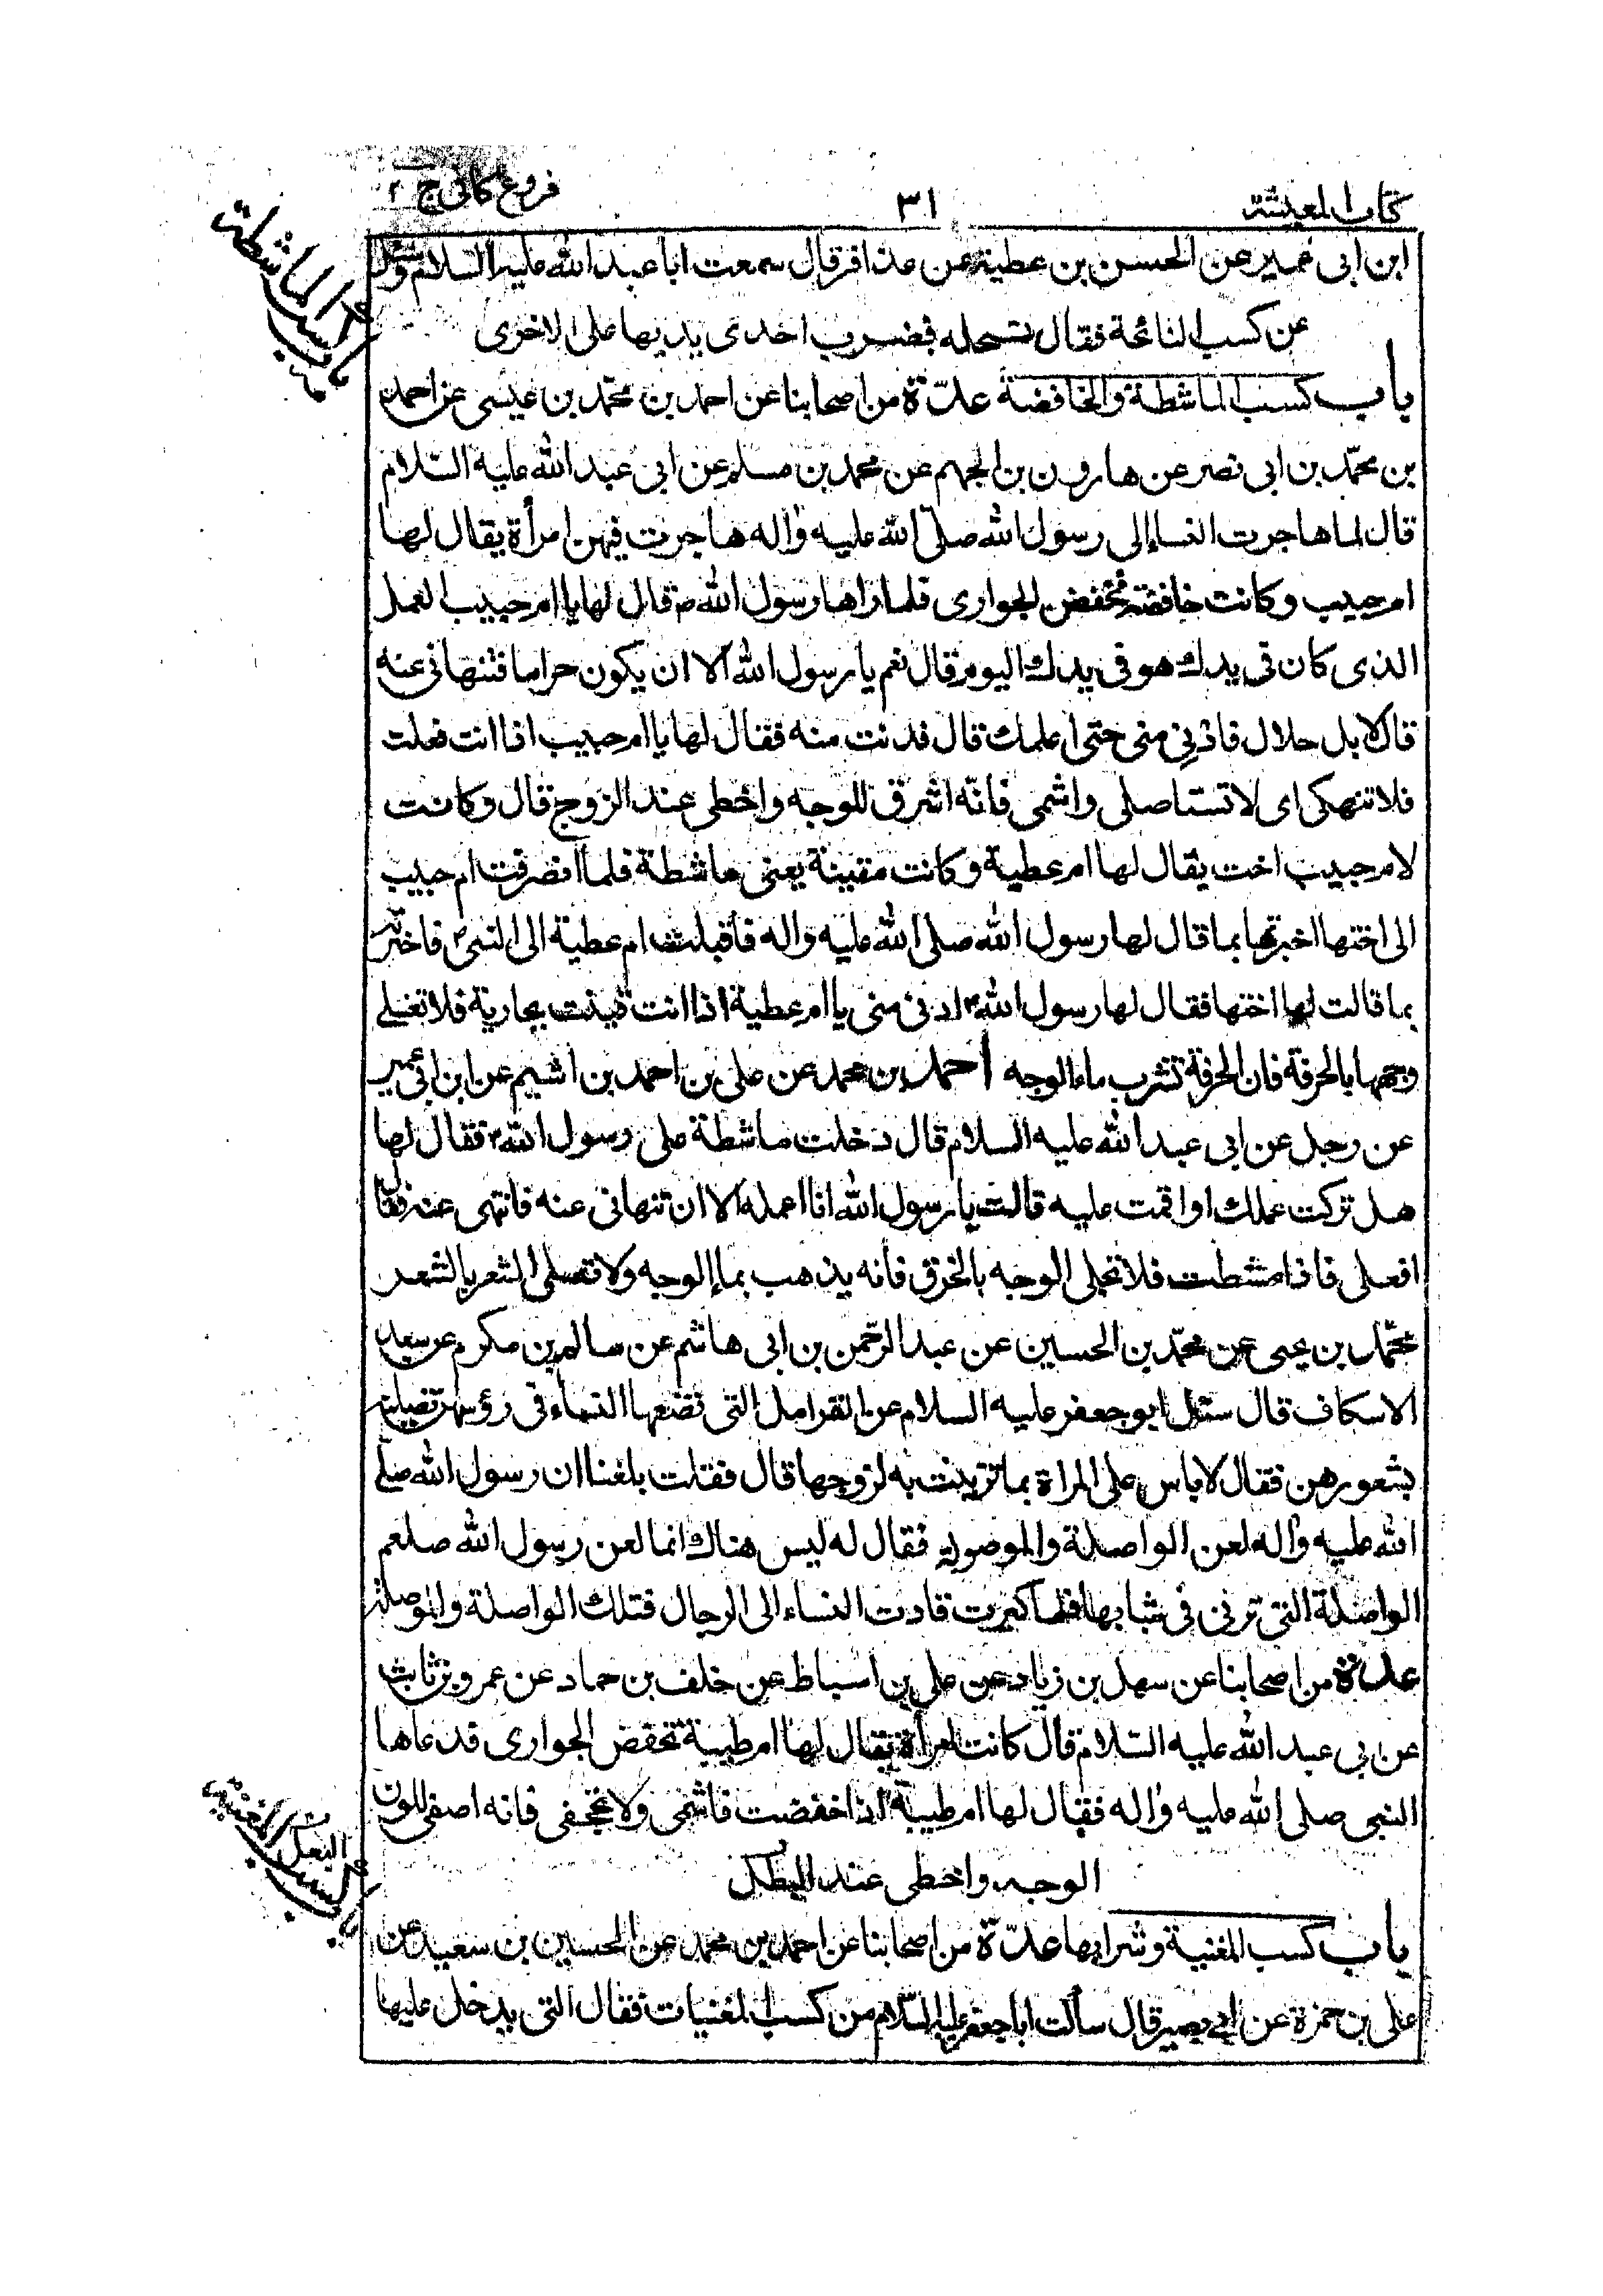 كتاب المعيشة
٣١
فروع كافى ج ٢
ابن ابى عمير عن الحسن بن عطية عن عذافر قال سمعت ابا عبد الله عليه السلام وسئل
عن كسب النائحة فقال تستحله بضرب احدى يديها على الاخرى
باب كسب الماشطة والخافضة عدّة من اصحابنا عن احمد بن محمّد بن عيسى عن احمد
بن محمّد بن ابى نصر عن هارون بن الجهم عن محمد بن مسلم عن ابى عبد الله عليه السّلام
قال لما هاجرت النساء إلى رسول الله صلّى الله عليه واله هاجرت فيهن امرأة يقال لها
ام حبيب وكانت خافضة تخفض الجوارى فلما راها رسول الله ص قال لها يا ام حبيب العمل
الذى كان فى يدك هو فى يدك اليوم قال نعم يا رسول الله الا ان يكون حراما فتنهانى عنه
قال لا بل حلال فادنى منى حتى اعلمك قال فدنت منه فقال لها يا ام حبيب اذا انت فعلت
فلا تنهكى اى لا تستاصلى واشمى فانّه اشرق للوجه واخطى عند الزوج قال وكانت
لام حبيب اخت يقال لها ام عطية وكانت مقينة يعنى ماشطة فلما انصرفت ام حبيب
الى اختها اخبرتها بما قال لها رسول الله صلى الله عليه واله فأقبلت ام عطية الى النبى ص فاخبرته
بما قالت لها اختها فقال لها رسول الله ص ادنى منى يا ام عطية اذا انت قينت بجارية فلا تغسلى
وجهها بالخرقة فان الخرقة تشرب ماء الوجه احمد بن محمد عن على بن احمد بن اشيم عن ابن ابى عمير
عن رجل عن ابى عبد الله عليه السلام قال دخلت ماشطة على رسول الله ص فقال لها
هل تركت عملك او اقمت عليه قالت يا رسول الله انا اعمله الا ان تنهانى عنه فانتهى عنه فقال
افعلى فاذا مشطت فلا تجلى الوجه بالخرق فانه يذهب بماء الوجه ولا تصلى الشعر بالشعر
محمّد بن يحيى عن محمّد بن الحسين عن عبد الرّحمن بن ابى هاشم عن سالم بن مكرم عن سعد
الاسكاف قال سئل ابو جعفر عليه السلام عن القرامل التى تضعها النساء فى رؤسهن تصلنه
بشعورهن فقال لا باس على المراة بما تزينت به لزوجها قال فقلت بلغنا ان رسول الله صلّى
الله عليه واله لعن الواصلة والموصولة فقال له ليس هناك انما لعن رسول الله صلعم
الواصلة التى تزنى فى شبابها فلما كبرت قادت النساء الى الرجال فتلك الواصلة والموصلة
عدّة من اصحابنا عن سهل بن زياد عن على بن اسباط عن خلف بن حماد عن عمرو بن ثابت
عن بى عبد الله عليه السّلام قال كانت امرأة يقال لها ام طيبة تخفض الجوارى فدعاها
النبى صلى الله عليه واله فقال لها ام طيبة اذا خفضت فاشمى ولا تجحفى فانه اصفى للون
الوجه واخطى عند البعل
باب كسب المغنية وشرايها عدّة من اصحابنا عن احمد بن محمد عن الحسين بن سعيد عن
على بن حمزة عن ابى بصير قال سألت ابا جعفر عليه السّلام من كسب المغنيات فقال التى يدخل عليها
باب كسب الماشطة
باب كسب المغنية